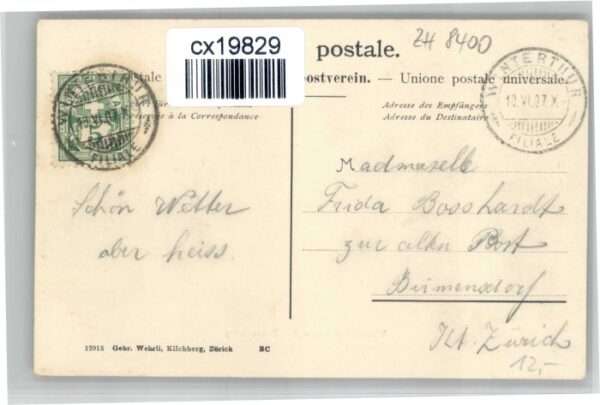 cx19829
postale.
ZH 8400
postale
postverein. — Unione postale universale.
für
e à la Correspondance
Adresse des Empfängers
Adresse du Destinataire
WINTERTHUR
10.VI.07.X
FILIALE
WINTERTHUR
VI.07.X
FILIALE
Schön Wetter
aber heiss.
Madmoiselle
Frida Bosshardt
zur alten Post
Birmensdorf
Kt. Zürich
12,-
Gebr. Wehrli, Kilchberg, Zürich